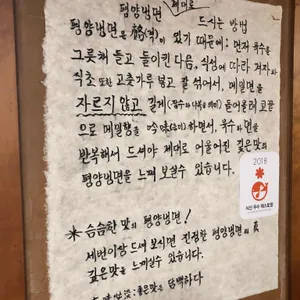 평양냉면 제대로 드시는 방법
평양냉면은 格(격)이 있기 때문에; 먼저 육수를
그릇째 들고 들이킨 다음, 식성에 따라 겨자와
식초 또한 고춧가루 넣고 잘 섞어서, 메밀면을
자르지 않고 길게 들어올려 코끝
으로 메밀향을 吟味(음미)하면서, 육수와 면을
반복해서 드셔야 제대로 어울어진 깊은맛의
평양냉면을 느껴 보실수 있습니다.
2018
* 슴슴한 맛의 평양냉면!
세번이상 드셔 보시면 진정한 평양냉면의
깊은맛을 느끼실수 있습니다.
좋은맛은 담백하다